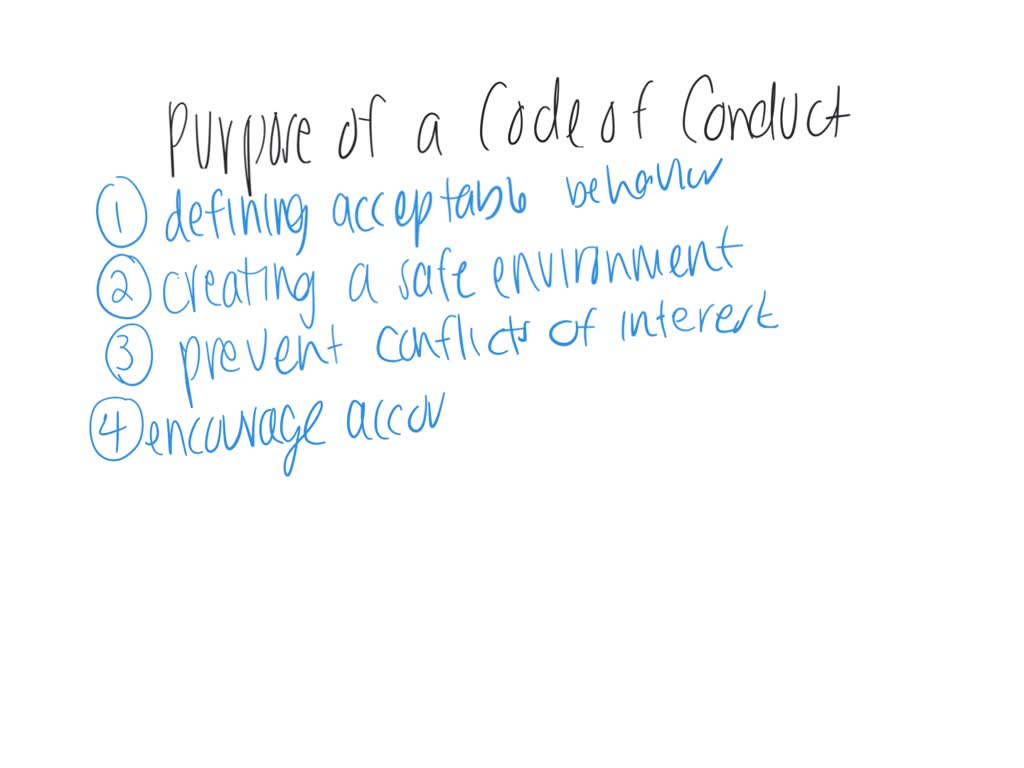 Purpose of a Code of Conduct
① defining acceptable behavior
② creating a safe environment
③ prevent conflicts of interest
④ encourage accou